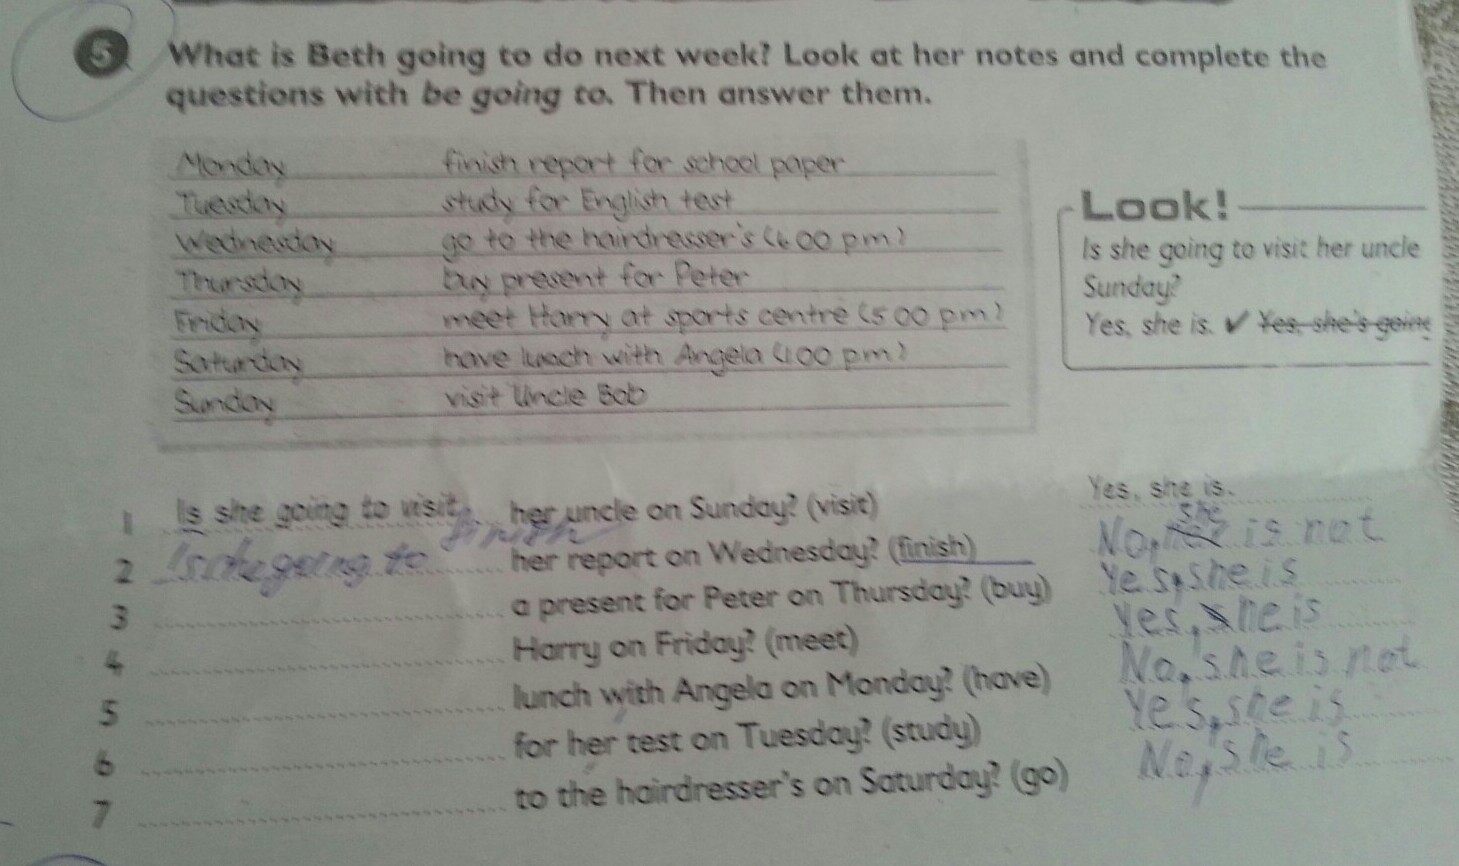 5 What is Beth going to do next week? Look at her notes and complete the
questions with be going to. Then answer them.
Monday finish report for school paper
Tuesday study for English test
Wednesday go to the hairdresser's (6 00 pm)
Thursday buy present for Peter
Friday meet Harry at sports centre (5 00 pm)
Saturday have lunch with Angela (1 00 pm)
Sunday visit Uncle Bob
Look!
Is she going to visit her uncle
Sunday?
Yes, she is. ✔ Yes, she's going
1 Is she going to visit her uncle on Sunday? (visit) Yes, she is.
2 Is she going to finish her report on Wednesday? (finish) No, she is not
3 a present for Peter on Thursday? (buy) Yes, she is
4 Harry on Friday? (meet) Yes, she is
5 lunch with Angela on Monday? (have) No, she is not
6 for her test on Tuesday? (study) Yes, she is
7 to the hairdresser's on Saturday? (go) No, she is